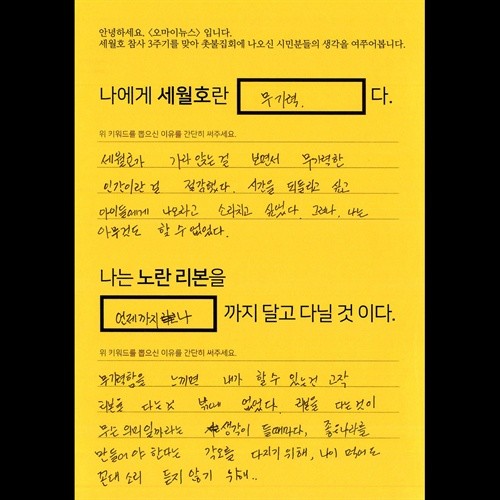 안녕하세요, <오마이뉴스> 입니다.
세월호 참사 3주기를 맞아 촛불집회에 나오신 시민분들의 생각을 여쭈어봅니다.
나에게 세월호란 무기력. 다.
위 키워드를 뽑으신 이유를 간단히 써주세요.
세월호가 가라 앉는 걸 보면서 무기력한
인간이란 걸 절감했다. 시간을 되돌리고 싶고
아이들에게 나오라고 소리치고 싶었다. 그러나, 나는
아무것도 할 수 없었다.
나는 노란 리본을
언제까지나 까지 달고 다닐 것 이다.
위 키워드를 뽑으신 이유를 간단히 써주세요.
무기력함을 느끼면 내가 할 수 있는건 고작
리본을 다는것 밖에 없었다. 리본을 다는것이
무슨 의미일까라는 생각이 들때마다, 좋은나라를
만들어야 한다는 각오를 다지기 위해, 나이 먹어도
꼰대 소리 듣지 않기 위해..